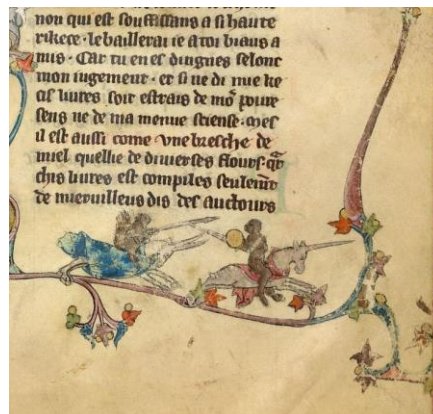 non qui est souffissans a si haute
rikece · le baillerai ie a toi biaus a
mis · Car tu en es dingnes selonc
mon iugement · et si ne di mie ke
cis liures soit estrais de mō poure
sens ne de ma menue sciense · mes
il est aussi come vne bresche de
miel quellie de diuerses flours ·
chis liures est compiles
de mieruilleus dis des auctours